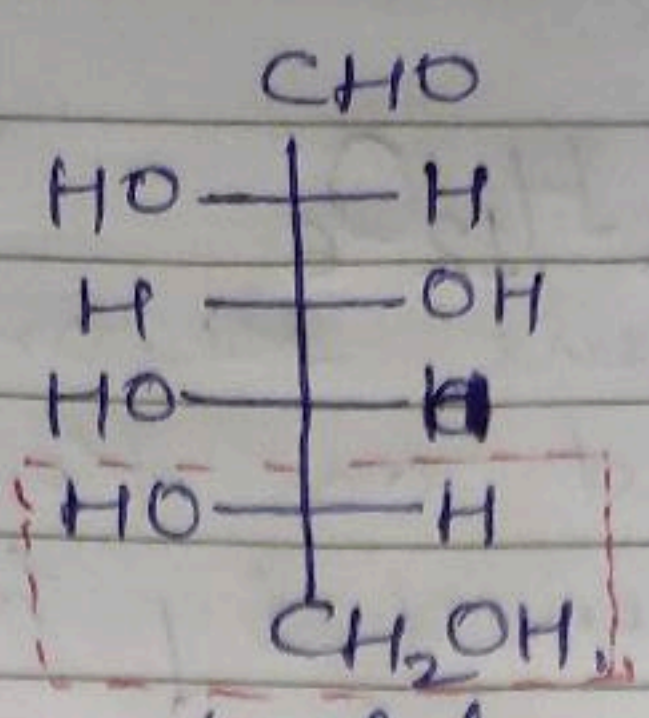 CHO
HO H
H OH
HO H
HO H
CH₂OH